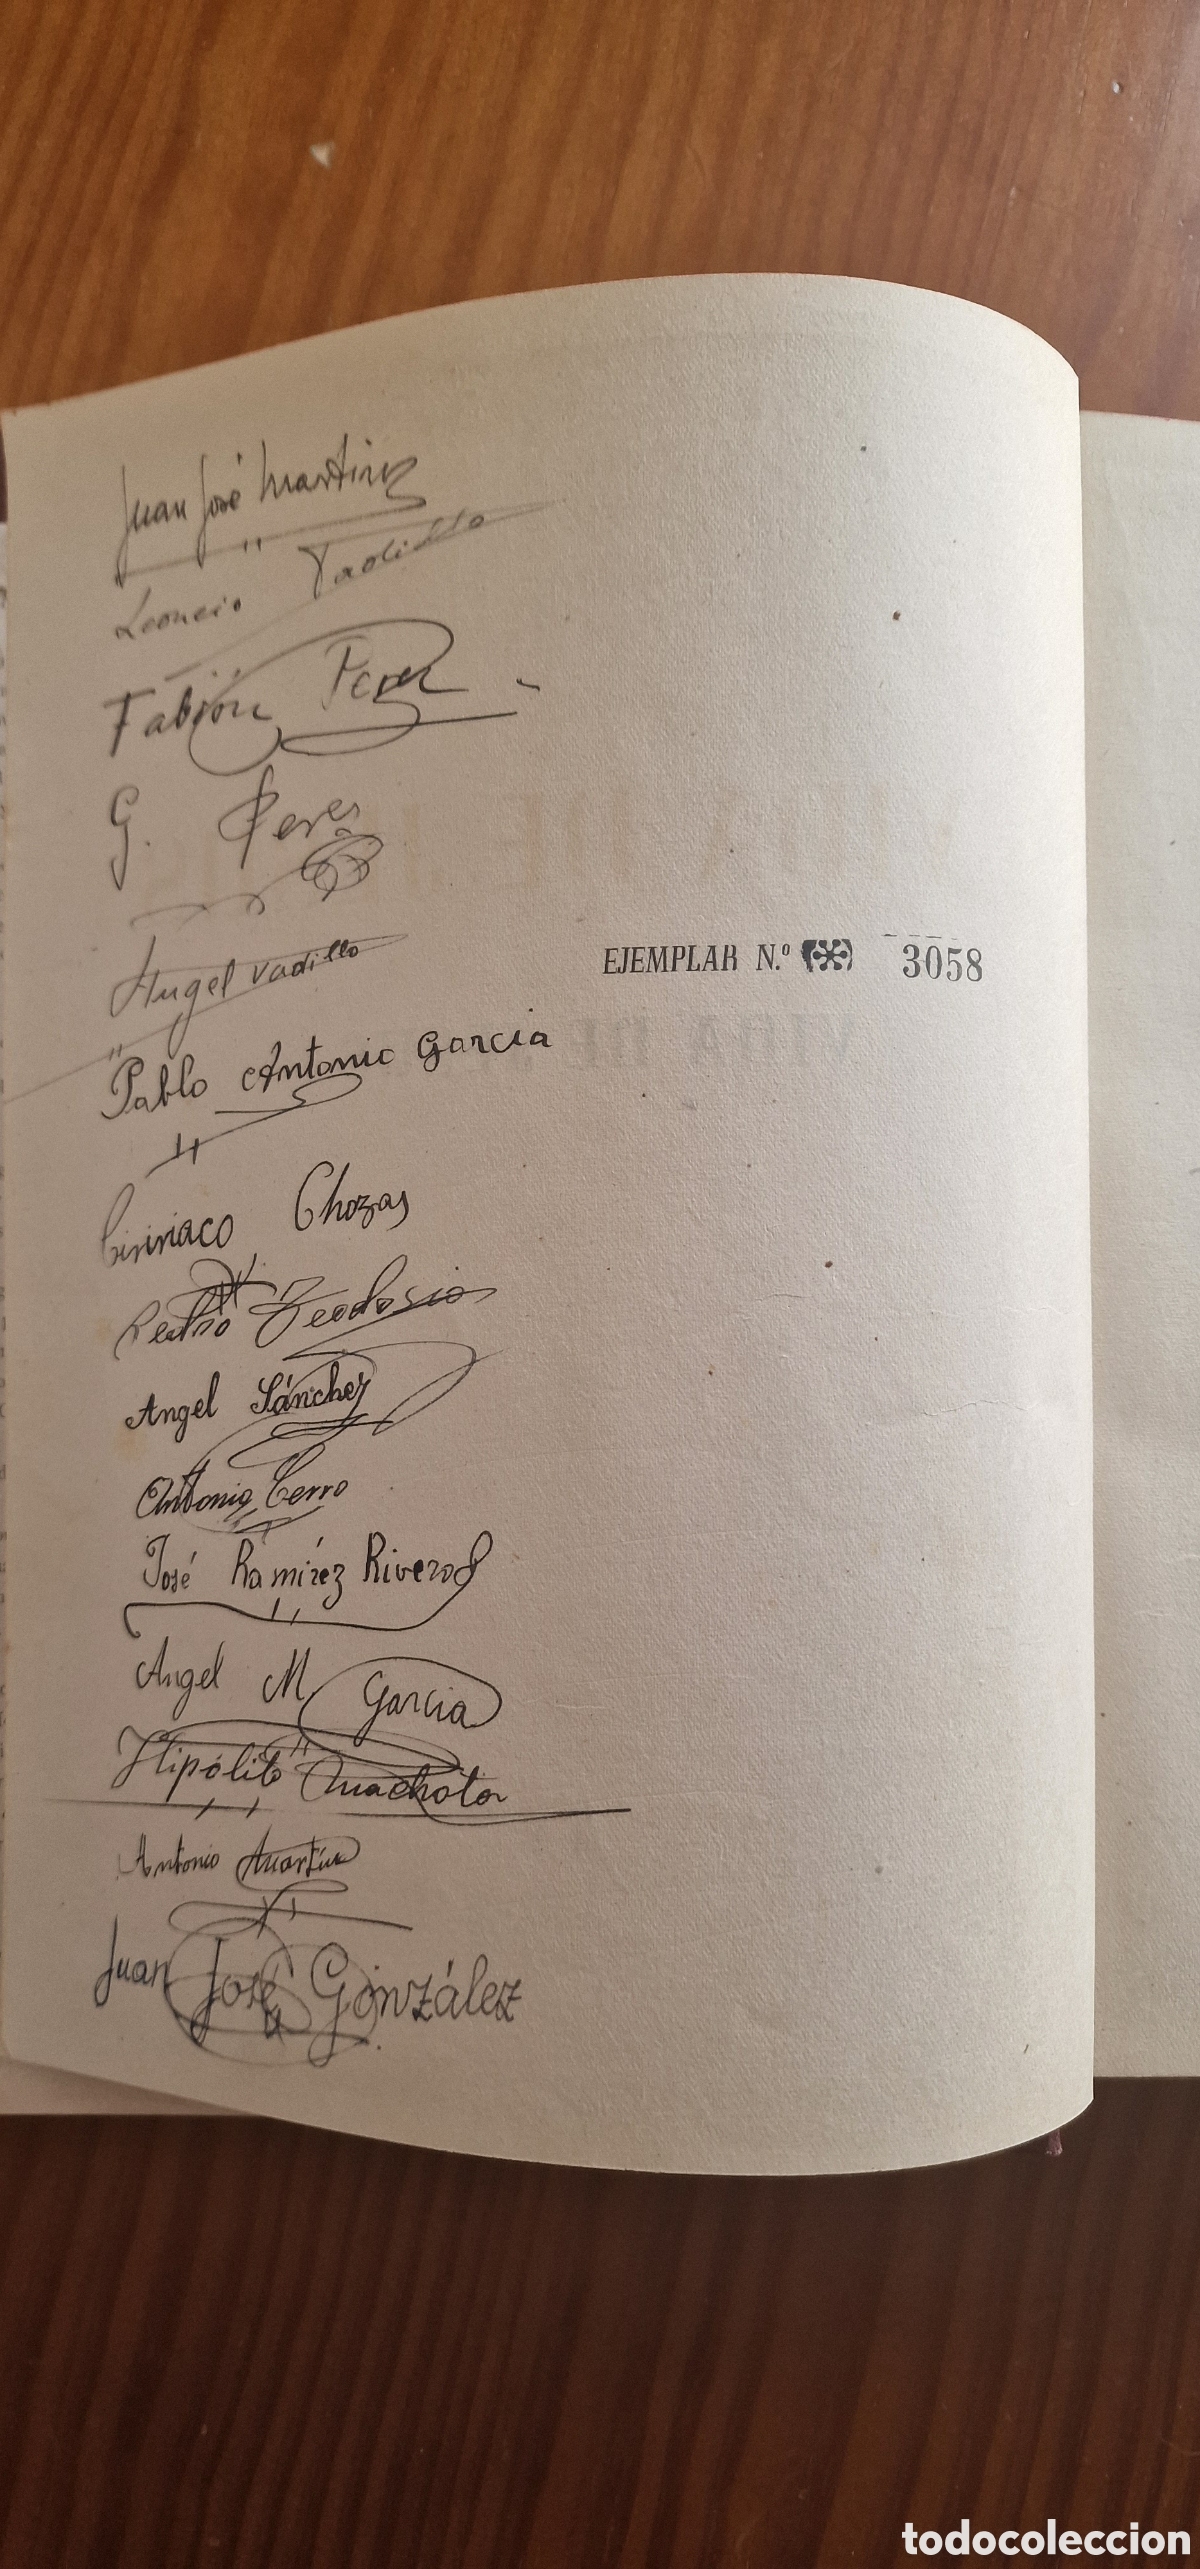 Juan José Martínez
Leoncio Padillo
Fabián Perez
G. Peres
Angel Vadillo
EJEMPLAR N.º 3058
Pablo Antonio Garcia
Ciriaco Chozas
Pedro Teodosio
Angel Sánchez
Antonio Cerro
José Ramírez Rivero
Angel M Garcia
Hipólito Machota
Antonio Martín
Juan José González
todocoleccion